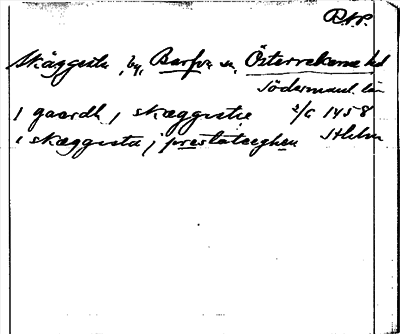 Skäggesta, by, Barfva sn, Österrekarne hd
Södermanl. län
1 gaardh j skæggistæ 2/6 1458
i skæggista j prestateeghen Sthlm